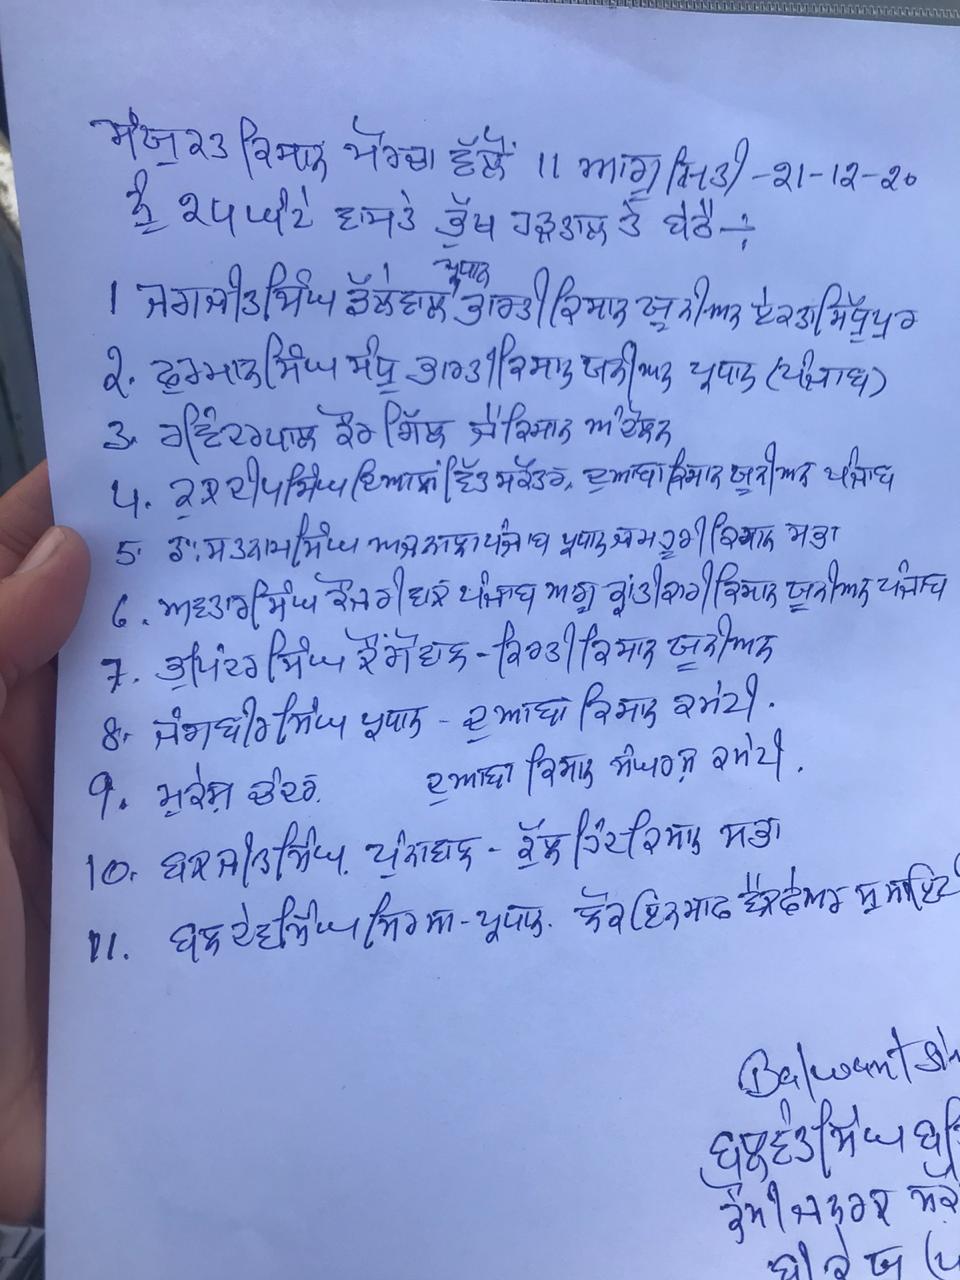 ਸੰਯੁਕਤ ਕਿਸਾਨ ਮੋਰਚਾ ਵੱਲੋਂ 11 ਆਗੂ ਮਿਤੀ -21-12-20
ਨੂੰ 24 ਘੰਟੇ ਵਾਸਤੇ ਭੁੱਖ ਹੜਤਾਲ ਤੇ ਬੈਠੇ ÷
ਪ੍ਰਧਾਨ
1 ਜਗਜੀਤ ਸਿੰਘ ਡੱਲੇਵਾਲ ਭਾਰਤੀ ਕਿਸਾਨ ਯੂਨੀਅਨ ਏਕਤਾ ਸਿੱਧੂਪੁਰ
2. ਫੁਰਮਾਨ ਸਿੰਘ ਸੰਧੂ ਭਾਰਤੀ ਕਿਸਾਨ ਯਨੀਅਨ ਪ੍ਰਧਾਨ (ਪੰਜਾਬ)
3. ਰਵਿੰਦਰਪਾਲ ਕੌਰ ਗਿੱਲ ਜੈ ਕਿਸਾਨ ਅੰਦੋਲਨ
4. ਕੁਲਦੀਪ ਸਿੰਘ ਦਿਆਲਾ ਵਿੱਤ ਸਕੱਤਰ, ਦੁਆਬਾ ਕਿਸਾਨ ਯੂਨੀਅਨ ਪੰਜਾਬ
5. ਡਾ: ਸਤਨਾਮ ਸਿੰਘ ਅਜਨਾਲਾ ਪੰਜਾਬ ਪ੍ਰਧਾਨ ਜਮਹੂਰੀ ਕਿਸਾਨ ਸਭਾ
6. ਅਵਤਾਰ ਸਿੰਘ ਕੌਰਜੀਵਾਲ ਪੰਜਾਬ ਆਗੂ ਕ੍ਰਾਂਤੀਕਾਰੀ ਕਿਸਾਨ ਯੂਨੀਅਨ ਪੰਜਾਬ
7. ਭੁਪਿੰਦਰ ਸਿੰਘ ਲੌਂਗੋਵਾਲ - ਕਿਰਤੀ ਕਿਸਾਨ ਯੂਨੀਅਨ
8. ਜੰਗਬੀਰ ਸਿੰਘ ਪ੍ਰਧਾਨ - ਦੁਆਬਾ ਕਿਸਾਨ ਕਮੇਟੀ.
9. ਮੁਕੇਸ਼ ਚੰਦਰ. ਦੁਆਬਾ ਕਿਸਾਨ ਸੰਘਰਸ਼ ਕਮੇਟੀ.
10. ਬਲਜੀਤ ਸਿੰਘ - ਕੁੱਲ ਹਿੰਦ ਕਿਸਾਨ ਸਭਾ
11. ਬਲਦੇਵ ਸਿੰਘ ਸਿਰਸਾ - ਪ੍ਰਧਾਨ. ਲੋਕ ਇਨਸਾਫ ਵੈਲਫੇਅਰ ਸੁਸਾਇਟੀ
Balwant
ਬਲਵੰਤ ਸਿੰਘ
ਕੌਮੀ ਜਨਰਲ
ਬੀ ਕੇ ਯੂ